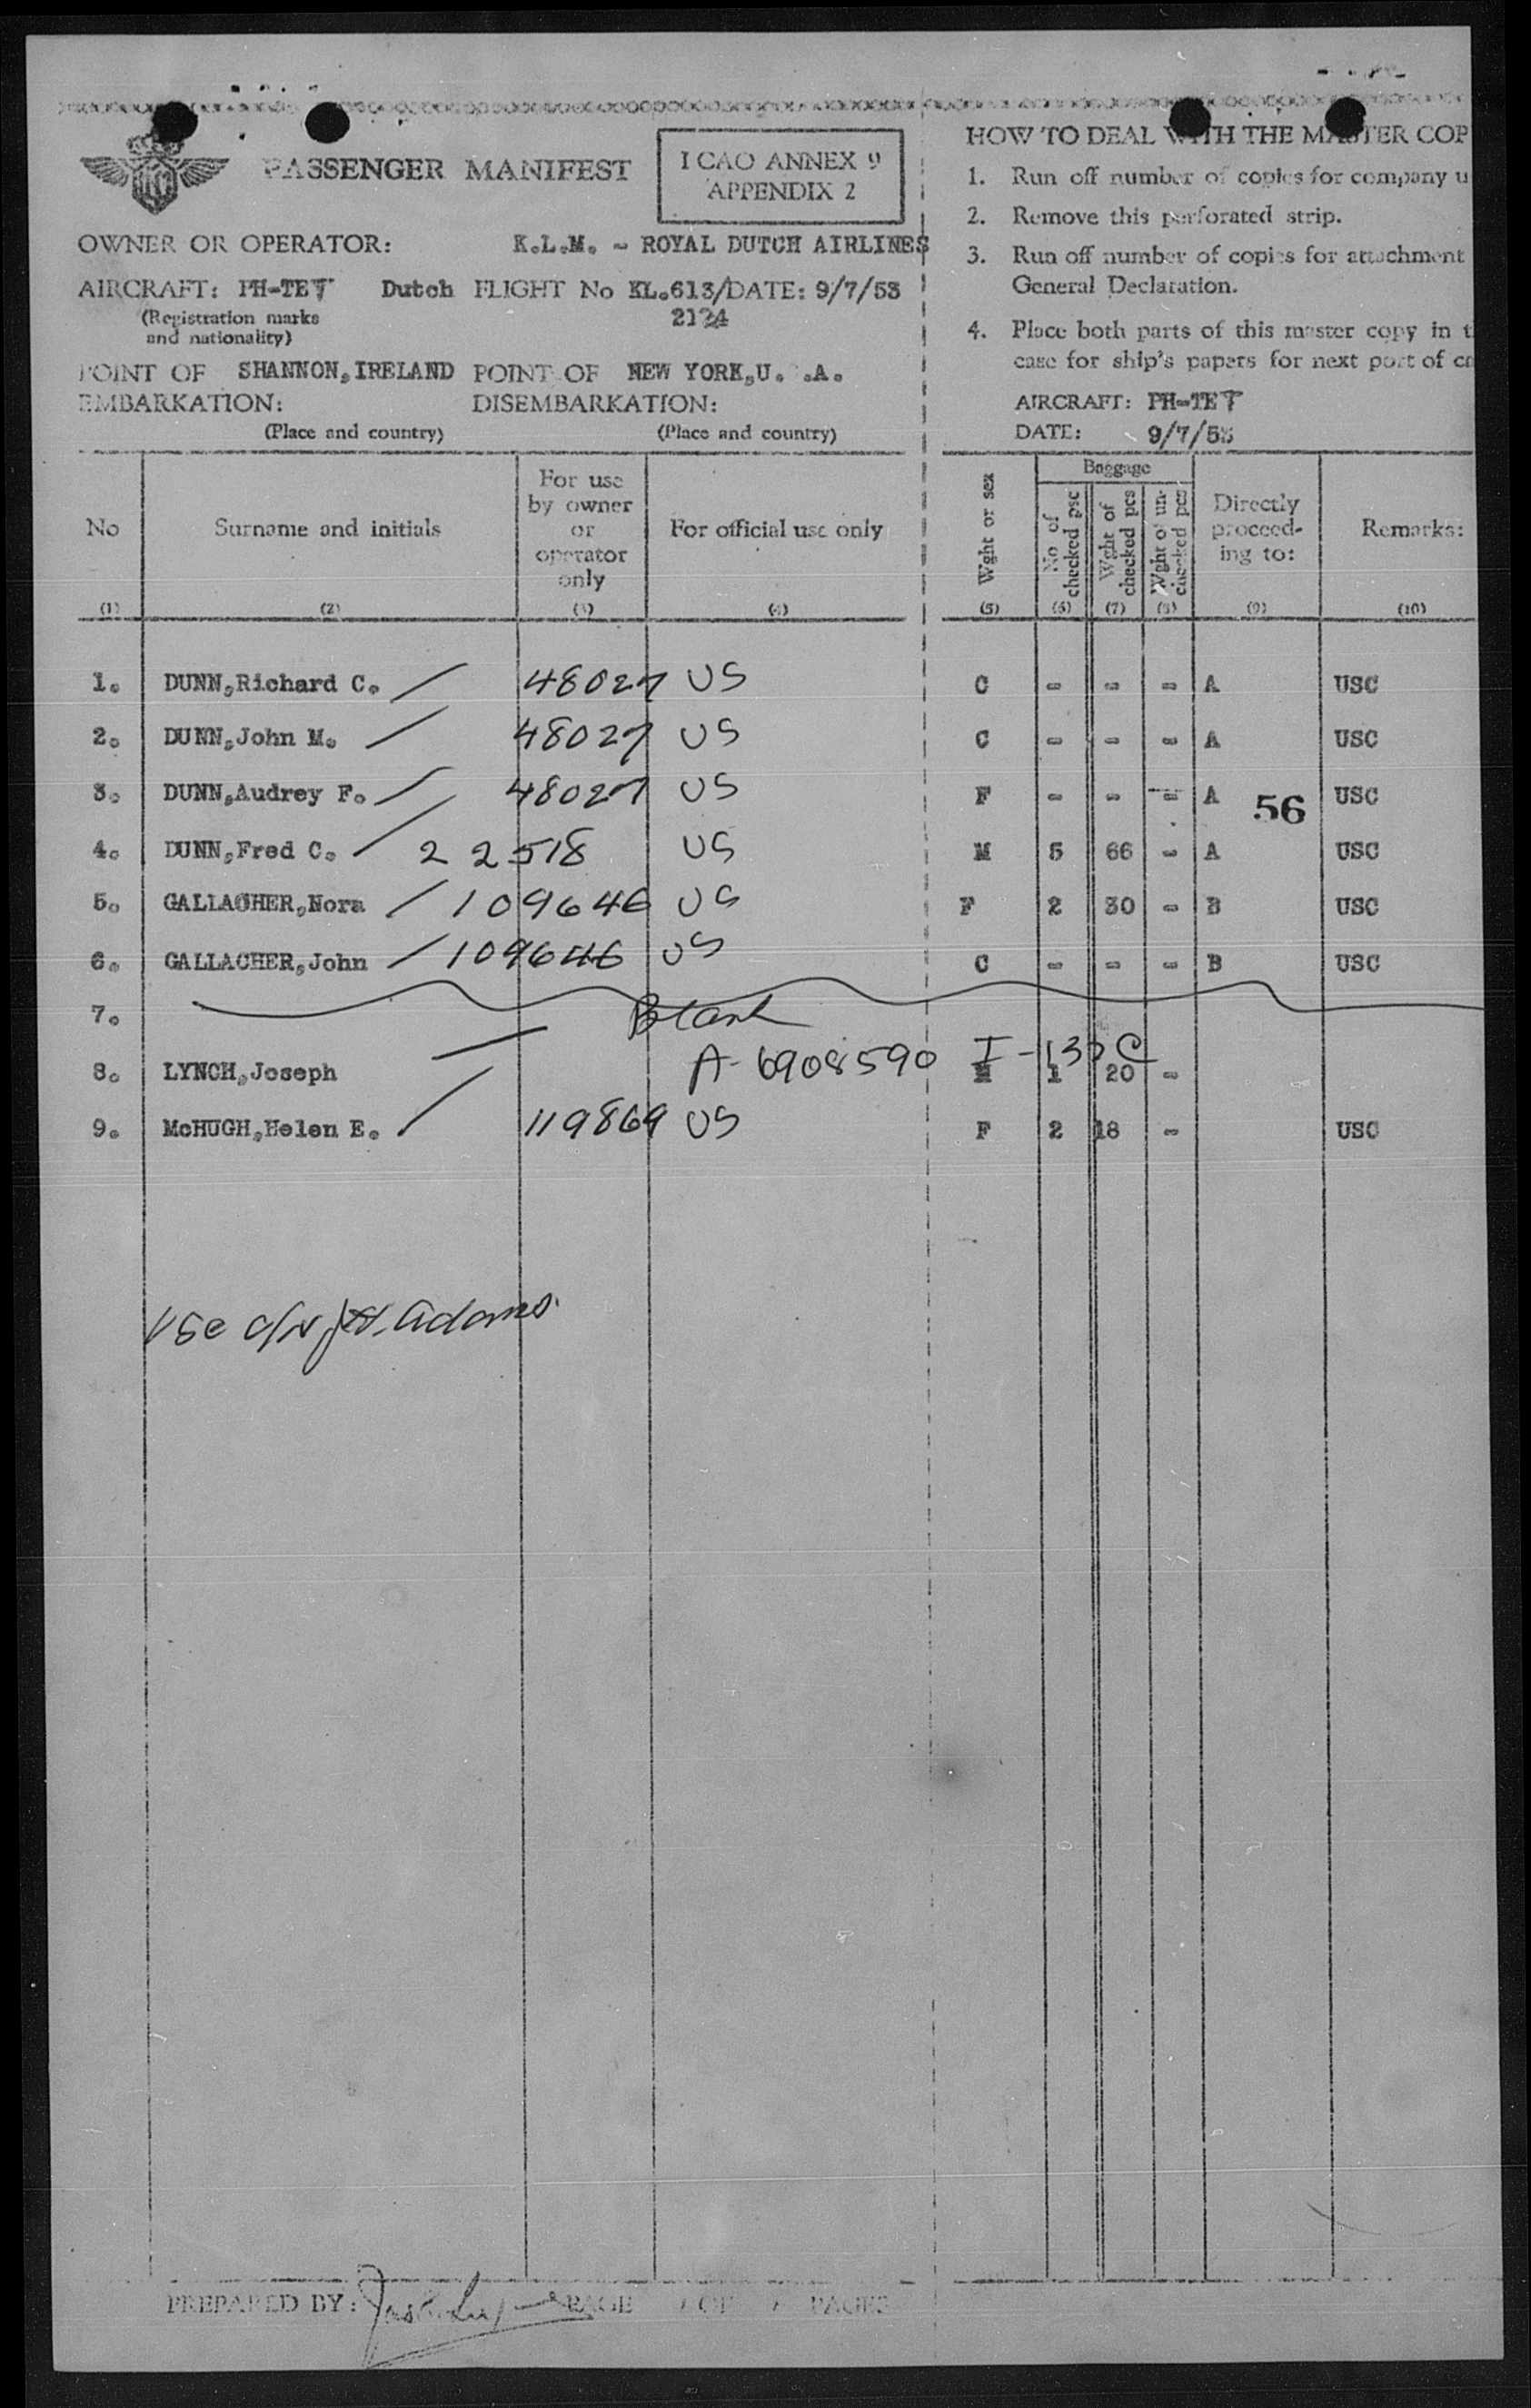 PASSENGER MANIFEST
ICAO ANNEX 9
APPENDIX 2
OWNER OR OPERATOR: K.L.M. - ROYAL DUTCH AIRLINES
AIRCRAFT: PH-TET Dutch FLIGHT No KL.613/DATE: 9/7/53
(Registration marks 2124
and nationality)
POINT OF SHANNON,IRELAND POINT OF NEW YORK,U. .A.
EMBARKATION: DISEMBARKATION:
(Place and country) (Place and country)
HOW TO DEAL WITH THE MASTER COP
1. Run off number of copies for company u
2. Remove this perforated strip.
3. Run off number of copies for attachment
General Declaration.
4. Place both parts of this master copy in t
case for ship's papers for next port of ca
AIRCRAFT: PH-TET
DATE: 9/7/53
No Surname and initials For use by owner or operator only For official use only Wght or sex Baggage No of checked psc Wght of checked pcs Wght of un-checked pcs Directly proceed-ing to: Remarks:
(1) (2) (3) (4) (5) (6) (7) (8) (9) (10)
1. DUNN,Richard C. / 48027 US C - - - A USC
2. DUNN,John M. / 48027 US C - - - A USC
3. DUNN,Audrey F. / 48027 US F - - - A 56 USC
4. DUNN,Fred C. / 22518 US M 5 66 - A USC
5. GALLAGHER,Nora / 109646 US F 2 30 - B USC
6. GALLAGHER,John / 109646 US C - - - B USC
7. Blank
8. LYNCH,Joseph / A-6908590 I-132C M 1 20 -
9. McHUGH,Helen E. / 119869 US F 2 18 - USC
Adams
PREPARED BY: PAGE OF PAGES